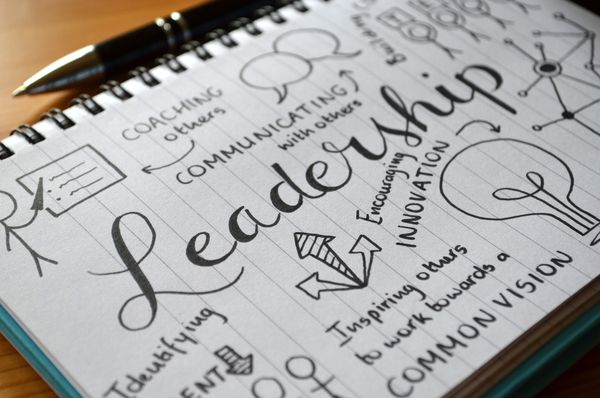 COACHING
others
COMMUNICATING
with others
Leadership
Encouraging
INNOVATION
Inspiring others
to work towards a
COMMON VISION
Identifying
ENT